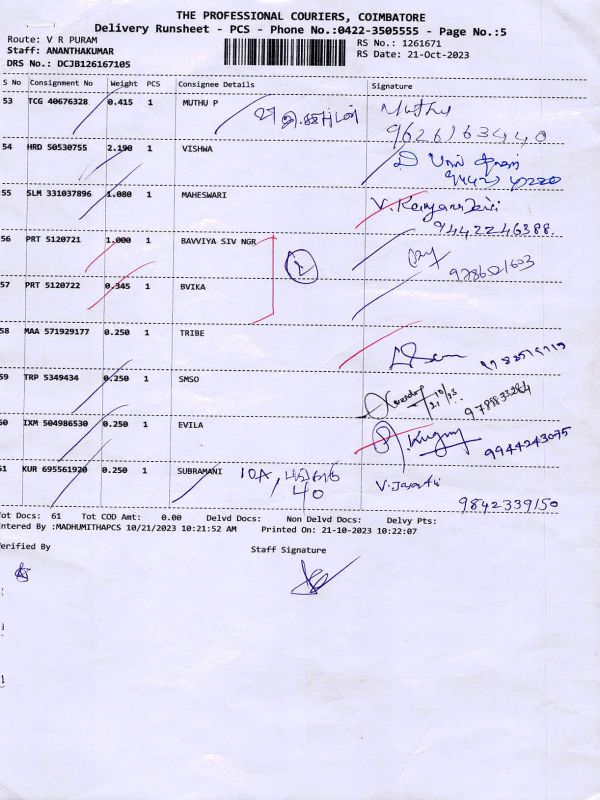 THE PROFESSIONAL COURIERS, COIMBATORE
Delivery Runsheet - PCS - Phone No.:0422-3505555 - Page No.:5
Route: V R PURAM
RS No.: 1261671
Staff: ANANTHAKUMAR
RS Date: 21-Oct-2023
DRS No.: DCJB126167105
S No Consignment No Weight PCS Consignee Details Signature
53 TCG 40676328 0.415 1 MUTHU P Muthu
9626163440
54 HRD 50530755 2.190 1 VISHWA
55 SLM 331037896 1.080 1 MAHESWARI
9442246388
56 PRT 5120721 1.000 1 BAVVIYA SIV NGR
2
57 PRT 5120722 0.345 1 BVIKA
58 MAA 571929177 0.250 1 TRIBE
59 TRP 5349434 0.250 1 SMSO
60 IXM 504986530 0.250 1 EVILA
9944243075
61 KUR 695561920 0.250 1 SUBRAMANI
40
9842339150
Tot Docs: 61 Tot COD Amt: 0.00 Delvd Docs: Non Delvd Docs: Delvy Pts:
Entered By :MADHUMITHAPCS 10/21/2023 10:21:52 AM Printed On: 21-10-2023 10:22:07
Verified By
Staff Signature